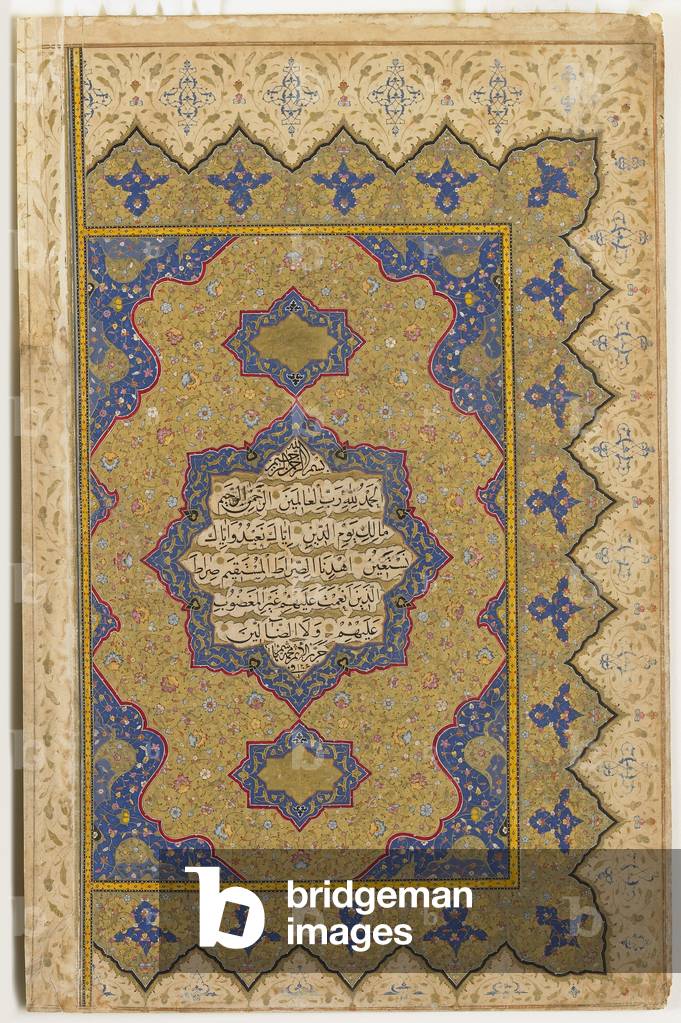 بسم الله الرحمن الرحيم
الحمد لله رب العالمين الرحمن الرحيم
مالك يوم الدين اياك نعبد واياك
نستعين اهدنا الصراط المستقيم صراط
الذين انعمت عليهم غير المغضوب
عليهم ولا الضالين
bridgeman
images